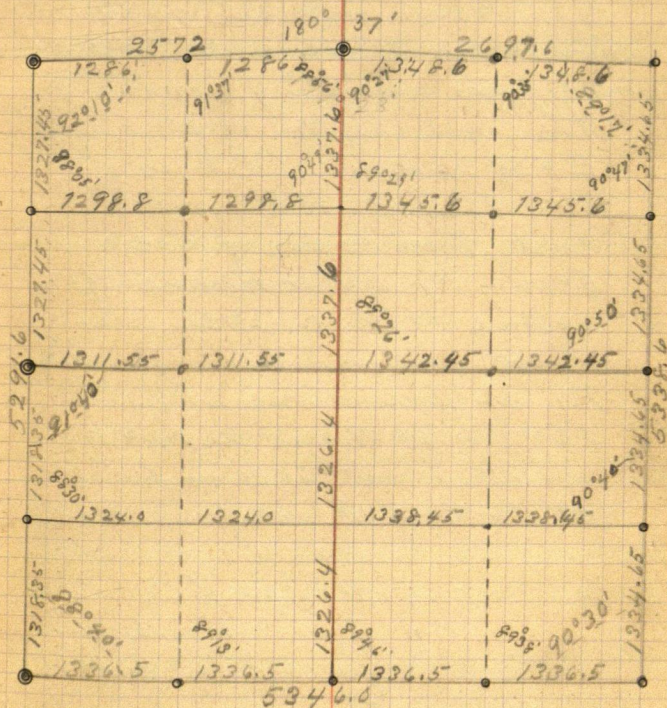 180° 37'
2572 2697.6
1286' 1286 1348.6 1348.6
92°19' 91°37' 88°56' 90°27' 90°35' 89°17'
1327.45 1337.6 1334.65
88°35' 90°49' 89°29' 90°47'
1298.8 1298.8 1345.6 1345.6
1327.45 1337.6 1334.65
89°26' 90°50'
1311.55 1311.55 1342.45 1342.45
5291.6 5338.6
91°40'
1318.35 1326.4 1334.65
88°30' 90°40'
1324.0 1324.0 1338.45 1338.45
1318.35 1326.4 1334.65
88°40' 89°13' 89°46' 89°38' 90°30'
1336.5 1336.5 1336.5 1336.5
5346.0